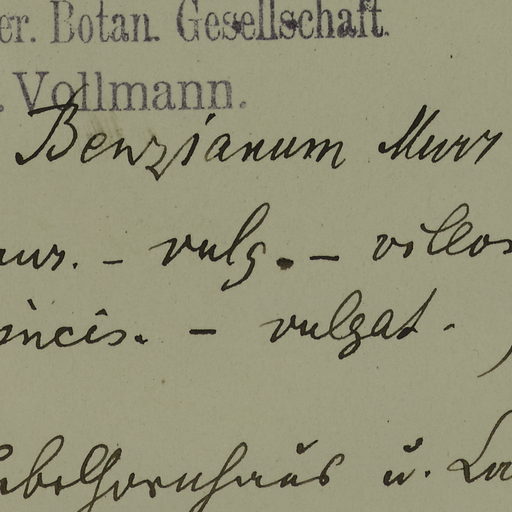 er. Botan. Gesellschaft.
. Vollmann.
Benzianum Murr
aur. - vulg. - villos
sincis. - vulgat.
ebelhornhaus u. La